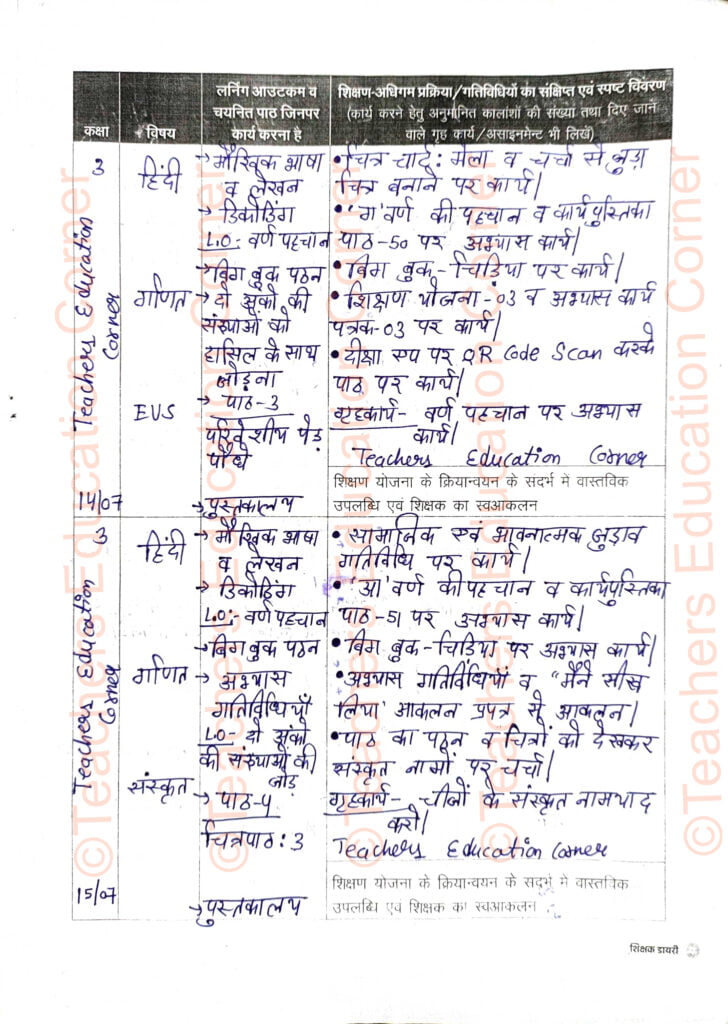 कक्षा
विषय
लर्निंग आउटकम व
चयनित पाठ जिनपर
कार्य करना है
शिक्षण-अधिगम प्रक्रिया/गतिविधियों का संक्षिप्त एवं स्पष्ट विवरण
(कार्य करने हेतु अनुमानित कालांशों की संख्या तथा दिए जाने
वाले गृह कार्य/असाइनमेन्ट भी लिखें)
3
Teachers Education
Corner
14/07
हिंदी
गणित
EVS
→ मौखिक भाषा
व लेखन
→ डिकोडिंग
L.O:- वर्ण पहचान
→ बिग बुक पठन
→ दो अंकों की
संख्याओं को
हासिल के साथ
जोड़ना
→ पाठ-3
परिवेशीय पेड़
पौधे
→ पुस्तकालय
• चित्र चार्ट: मेला व चर्चा से जुड़ा
चित्र बनाने पर कार्य।
• 'ग' वर्ण की पहचान व कार्यपुस्तिका
पाठ-50 पर अभ्यास कार्य।
• बिग बुक-चिड़िया पर कार्य।
• शिक्षण योजना-03 व अभ्यास कार्य
पत्रक-03 पर कार्य।
• दीक्षा एप पर QR Code Scan करके
पाठ पर कार्य।
गृहकार्य- वर्ण पहचान पर अभ्यास
कार्य।
Teachers Education Corner
शिक्षण योजना के क्रियान्वयन के संदर्भ में वास्तविक
उपलब्धि एवं शिक्षक का स्वआकलन
3
Teachers Education
Corner
15/07
हिंदी
गणित
संस्कृत
→ मौखिक भाषा
व लेखन
→ डिकोडिंग
L.O:- वर्ण पहचान
→ बिग बुक पठन
→ अभ्यास
गतिविधियाँ
L.O- दो अंकों
की संख्याओं की
जोड़
→ पाठ-4
चित्रपाठ: 3
→ पुस्तकालय
• सामाजिक एवं भावनात्मक जुड़ाव
गतिविधि पर कार्य।
• 'आ' वर्ण की पहचान व कार्यपुस्तिका
पाठ-51 पर अभ्यास कार्य।
• बिग बुक-चिड़िया पर अभ्यास कार्य।
• अभ्यास गतिविधियों व "मैंने सीख
लिया' आकलन प्रपत्र से आकलन।
• पाठ का पठन व चित्रों को देखकर
संस्कृत नामों पर चर्चा।
गृहकार्य- चीजों के संस्कृत नाम याद
करो।
Teachers Education Corner
शिक्षण योजना के क्रियान्वयन के संदर्भ में वास्तविक
उपलब्धि एवं शिक्षक का स्वआकलन
शिक्षक डायरी
©Teachers Education Corner
©Teachers Education Corner
©Teachers Education Corner
©Teachers Education Corner